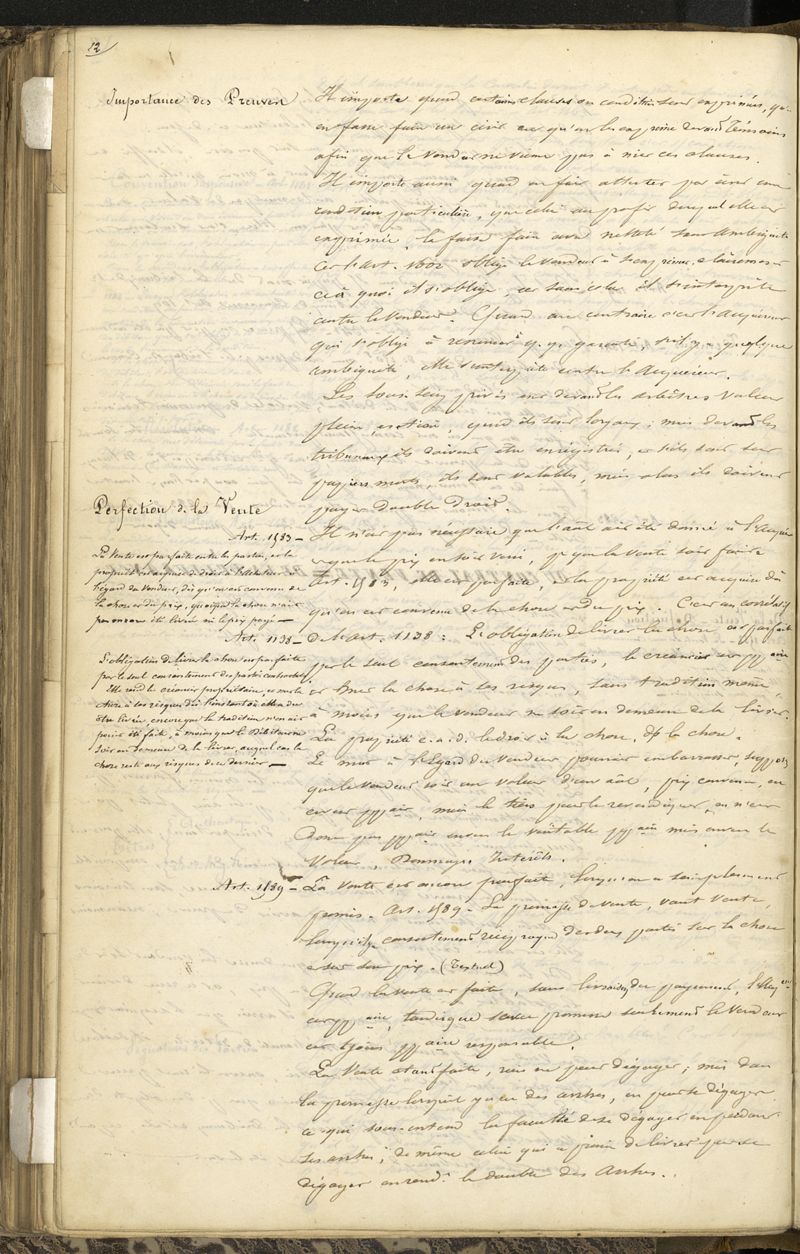 12
Importance des Preuves
Il importe quand certaines clauses ou conditions sont exprimées, qu'on
en fasse faire un écrit ou qu'on les exprime devant Témoins
afin que le Vendeur ne vienne pas à nier ces clauses.
Il importe aussi quand on fait attester par écrit une
condition particulière, que celui au profit duquel elle est
exprimée, la fasse faire avec netteté sans ambiguité
Car l'Art. 1602 oblige le Vendeur à s'exprimer clairement
à quoi il s'oblige, car sans cela il s'interprète
contre le Vendeur. Quand au contraire c'est l'Acquéreur
qui s'oblige à q.q. garantie, s'il y a quelque
ambiguité, elle s'interprète contre l'Acquéreur.
Les sous seing privés ont devant les arbitres valeur
pleine, entière, quand ils sont loyaux; mais devant les
tribunaux ils doivent être enregistrés, et s'ils sont sur
papiers morts, ils sont valables, mais alors ils doivent
payer double Droit.
Perfection de la Vente
Il n'est pas nécessaire que l'âne ait été donné à l'Acqué-
reur que le prix en soit versé, pr que la vente soit faite
Art. 1583, elle est parfaite, et la propriété est acquise dès
qu'on est convenu de la chose et du prix. C'est un corrélatif
de l'Art. 1138: L'obligation de livrer la chose est parfaite
par le seul consentement des parties, le créancier est ppaire
et met la chose à ses risques, sans tradition même,
à moins que le vendeur ne soit en demeure de la livrer.
La propriété c. a. d. le droit à la chose, de la chose.
Le mot à l'Égard du Vendeur pourrait embarrasser, supposez
que le vendeur soit un voleur d'un âne, prix convenu, on
est ppaire, mais le tiers peut le revendiquer, on n'est
donc pas ppaire envers le véritable ppaire mais envers le
Voleur, Dommages Intérêts.
Art. 1583 —
La Vente est parfaite entre les parties, et la
propriété est acquise de droit à l'Acheteur à
l'égard du Vendeur, dès qu'on est convenu de
la chose et du prix, quoique la chose n'ait
pas encore été livrée ni le prix payé —
Art. 1138 —
L'obligation de livrer la chose est parfaite
par le seul consentement des parties contractantes
Elle rend le créancier propriétaire, et met la
chose à ses risques dès l'instant où elle a dû
être livrée, encore que la tradition n'en ait
point été faite, à moins que le Débiteur ne
soit en Demeure de la livrer, auquel cas la
chose reste aux risques de ce dernier —
Art. 1589 —
La Vente est encore parfaite, lorsqu'on a simplement
promis. Art. 1589 — La promesse de vente, vaut Vente,
lorsqu'il y a consentement réciproque des deux parties sur la chose
et sur son prix. (Textuel)
Quand la vente est faite, sans livraison du payement, l'Acqeur
est ppaire, tandis que promesse seulement le Vendeur
est tjours ppaire responsable.
La Vente étant faite, rien ne peut dégager; mais dans
la promesse lorsqu'il y a eu des arrhes, on peut se dégager
ce qui sous-entend la faculté de se dégager en perdant
ses arrhes, de même celui qui a promis de livrer peut se
dégager en rendt le double des Arrhes.